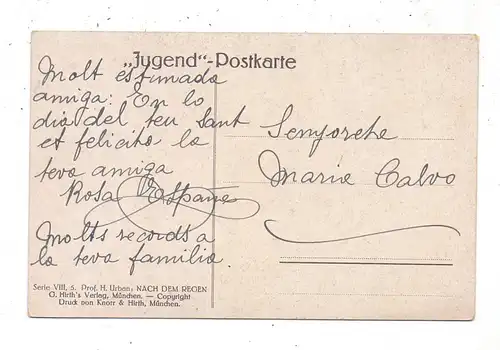 „Jugend“-Postkarte
Molt estimada
amiga: En lo
dia del teu Sant
et felicita la
teva amiga
Rosa Espana
Molts records a
la teva familia.
Senyorete
Maria Calvo
Serie VIII, 5. Prof. H. Urban: NACH DEM REGEN
G. Hirth's Verlag, München. — Copyright
Druck von Knorr & Hirth, München.